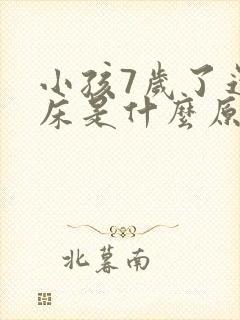 小孩7歲了
床是什麼原
北暮南